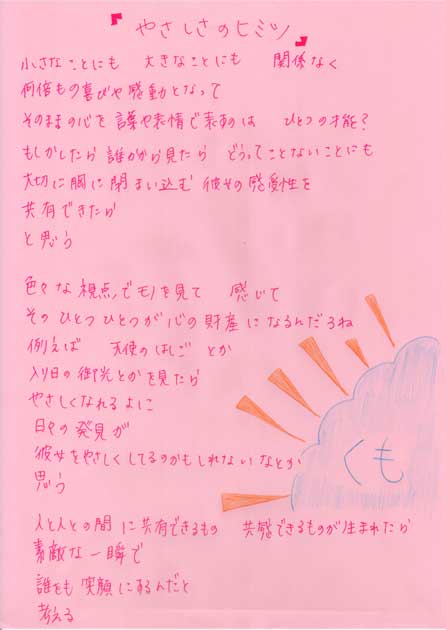 『やさしさのヒミツ』
小さなことにも 大きなことにも 関係なく
何倍もの喜びや感動となって
そのままの心を言葉や表情で表すのは ひとつの才能?
もしかしたら誰かから見たら どうってことないことにも
大切に胸に閉まい込む 彼女の感受性を
共有できたら
と思う
色々な視点でモノを見て 感じて
そのひとつひとつが心の財産になるんだろね
例えば 天使のはしご とか
入り日の御光とかを見たら
やさしくなれるよに
日々の発見が
彼女をやさしくしてるのかもしれないなとか
思う
人と人との間に共有できるもの 共感できるものが生まれたら
素敵な一瞬で
誰をも笑顔にするんだと
考える
くも